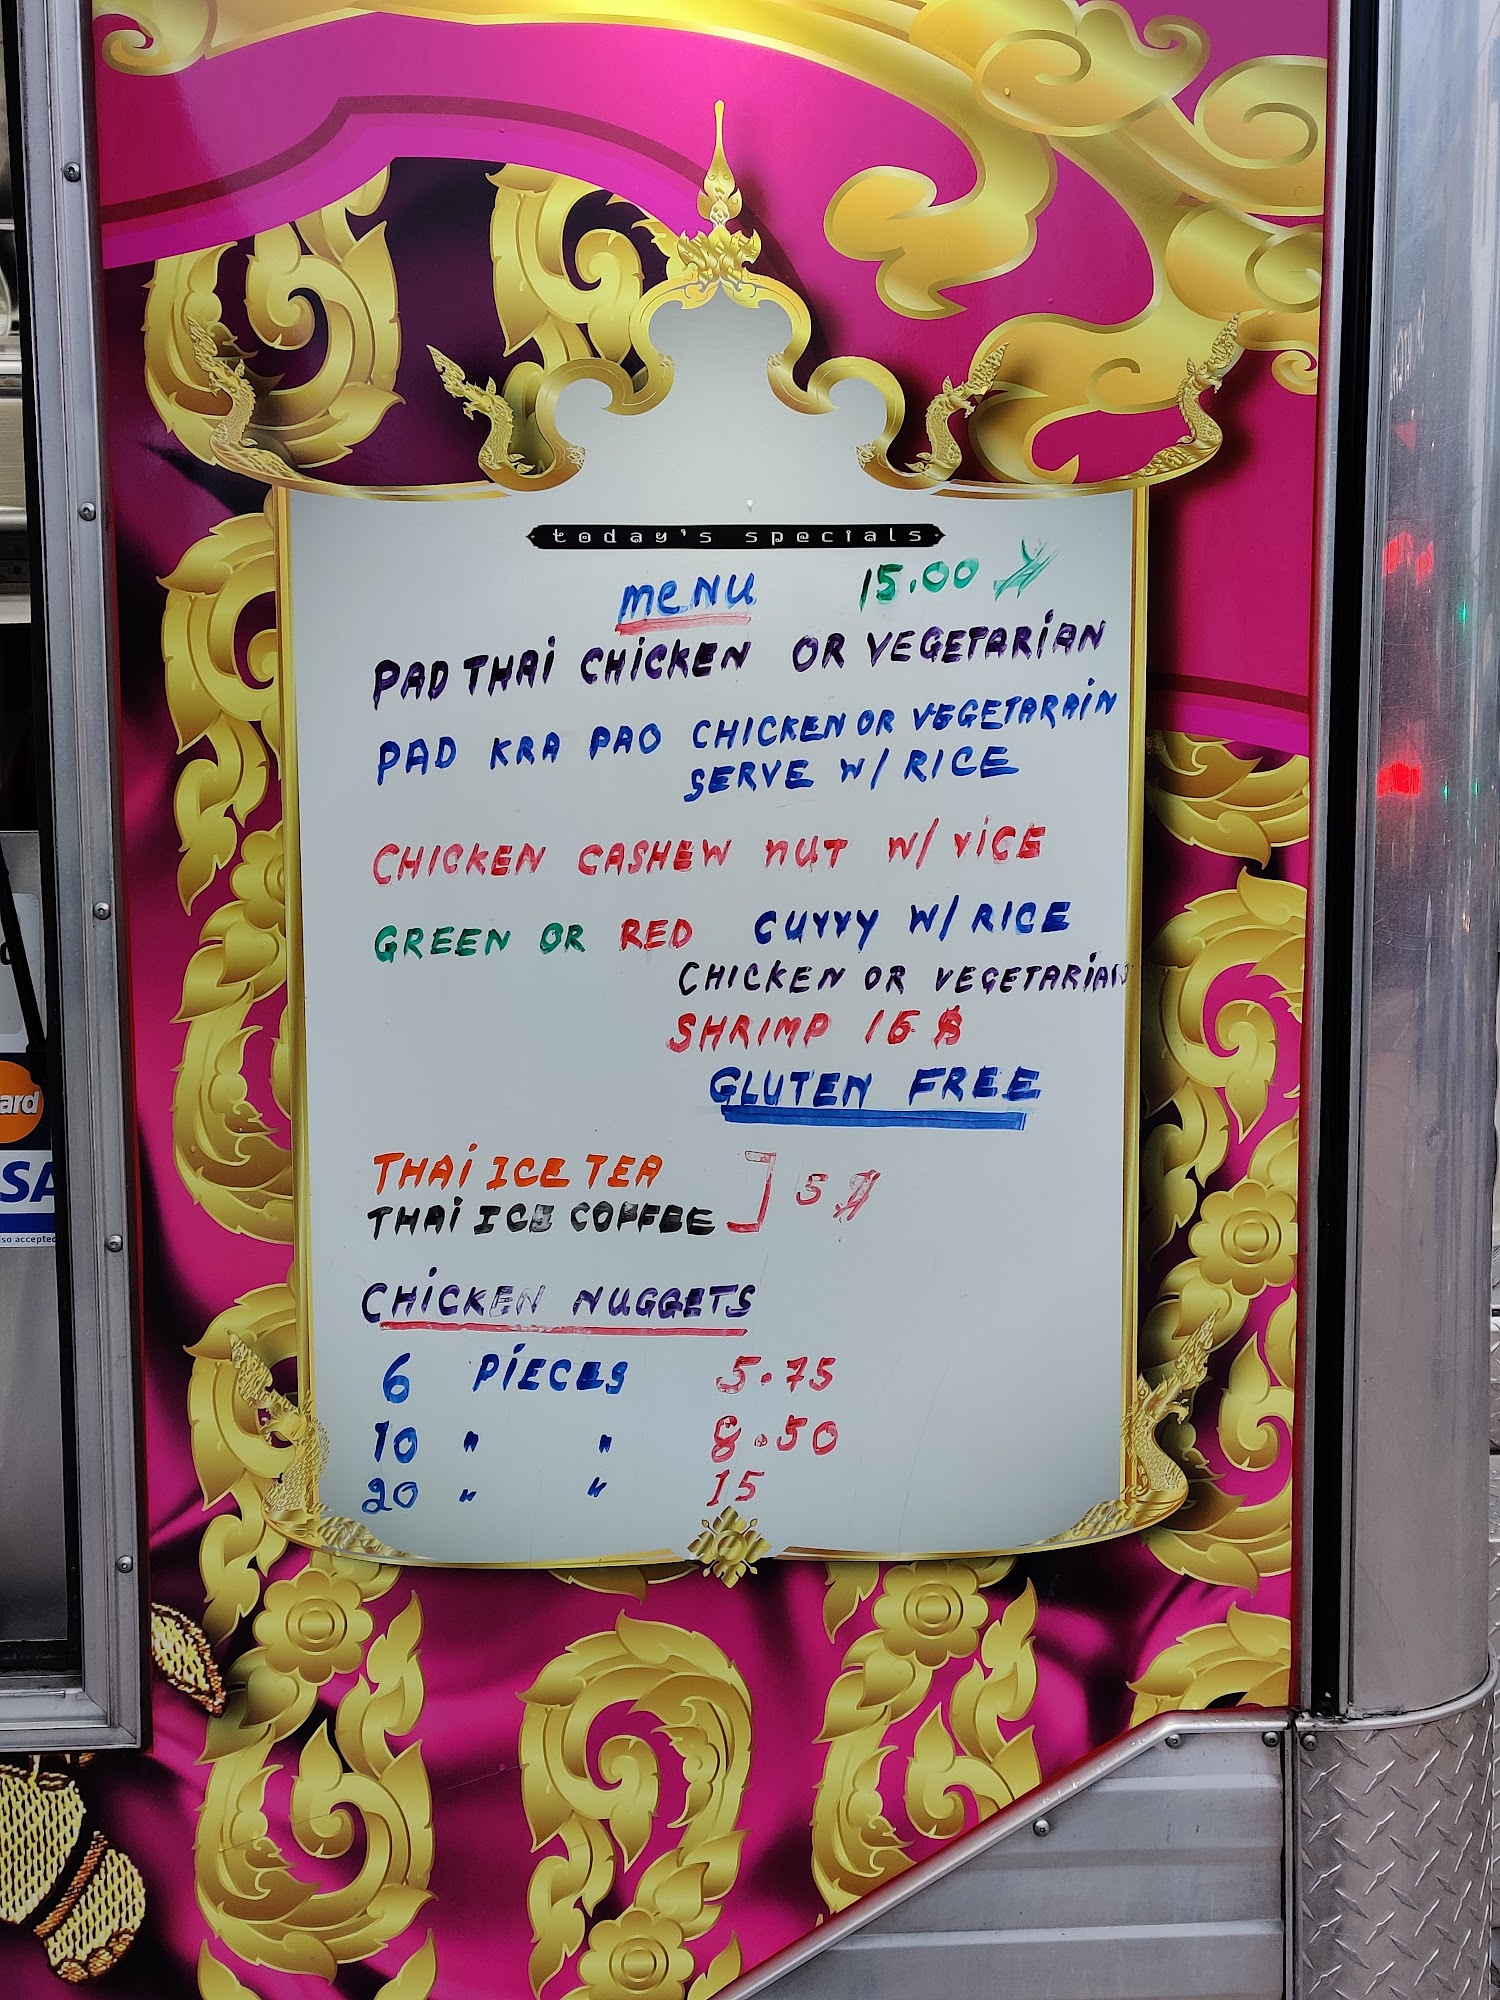 today's specials
MENU 15.00 $
PAD THAI CHICKEN OR VEGETARIAN
PAD KRA PAO CHICKEN OR VEGETARAIN
SERVE W/ RICE
CHICKEN CASHEW NUT W/ RICE
GREEN OR RED CURRY W/ RICE
CHICKEN OR VEGETARIAN
SHRIMP 16 $
GLUTEN FREE
THAI ICE TEA
THAI ICE COFFEE ] 5 $
CHICKEN NUGGETS
6 PIECES 5.75
10 " " 8.50
20 " " 15
ard
SA
so accepted